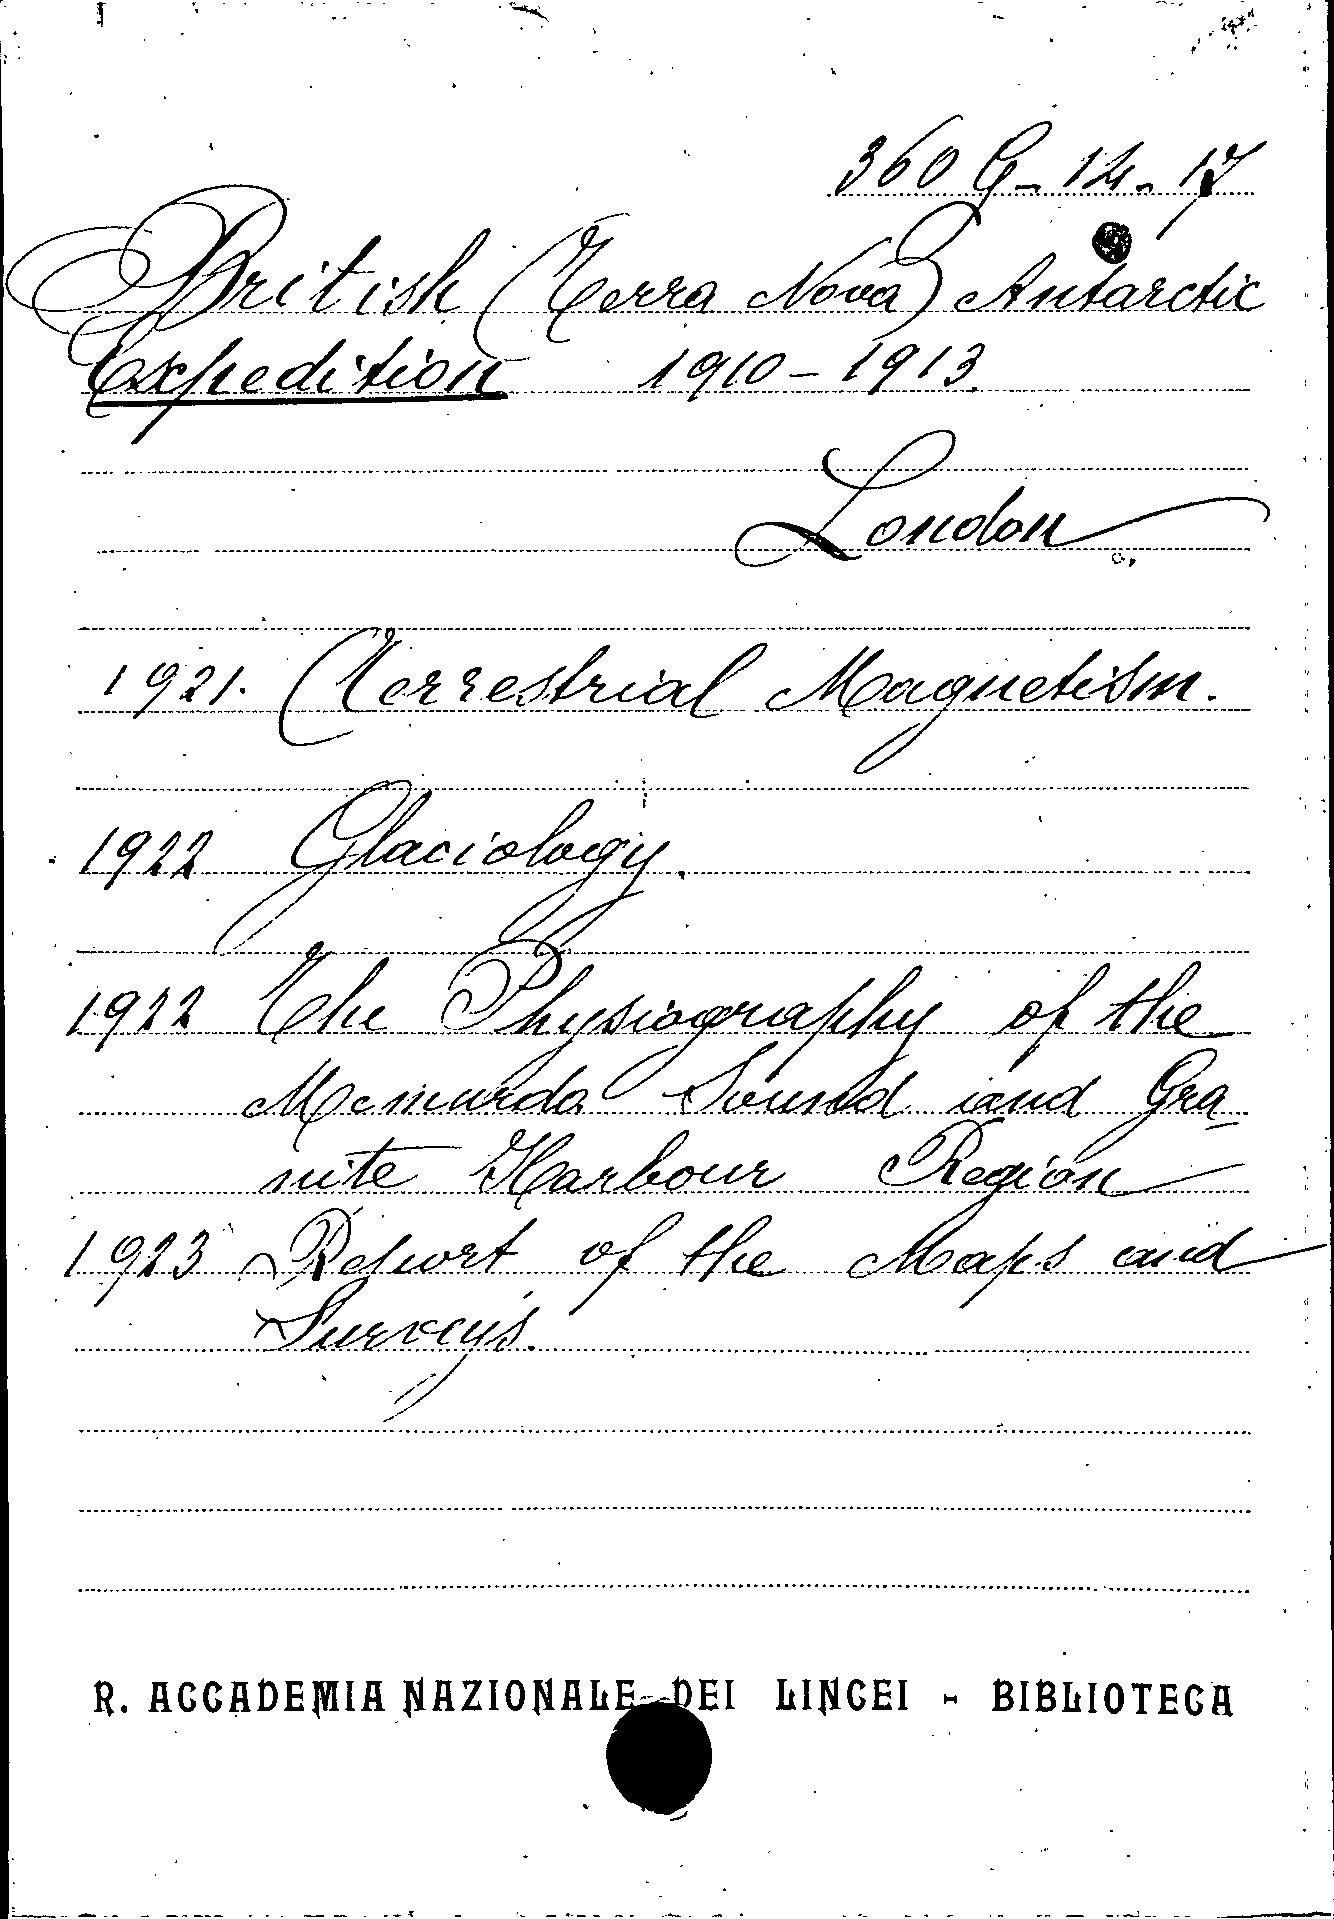 360 G - 14 - 17
British (Terra Nova) Antarctic
Expedition 1910-1913
London
1921. Terrestrial Magnetism.
1922 Glaciology.
1922 The Physiography of the
Mcmurdo Sound and Gra-
nite Harbour Region
1923 Report of the Maps and
Surveys.
R. ACCADEMIA NAZIONALE DEI LINCEI - BIBLIOTECA